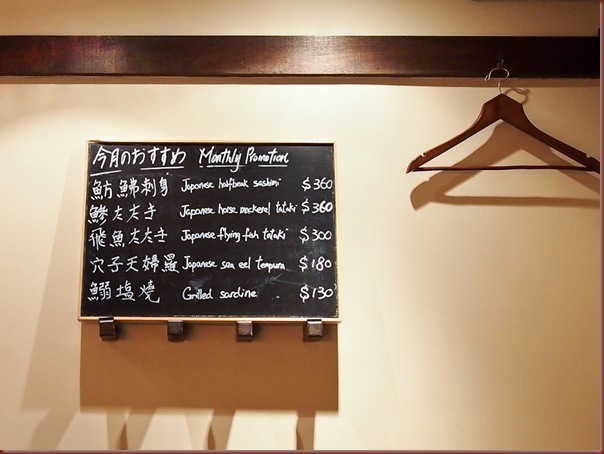 今月のおすすめ Monthly Promotion
魴鮄刺身 Japanese halfbeak sashimi $360
鰺たたき Japanese horse mackerel tataki $360
飛魚たたき Japanese flying fish tataki $300
穴子天婦羅 Japanese sea eel tempura $180
鰯塩燒 Grilled sardine $130